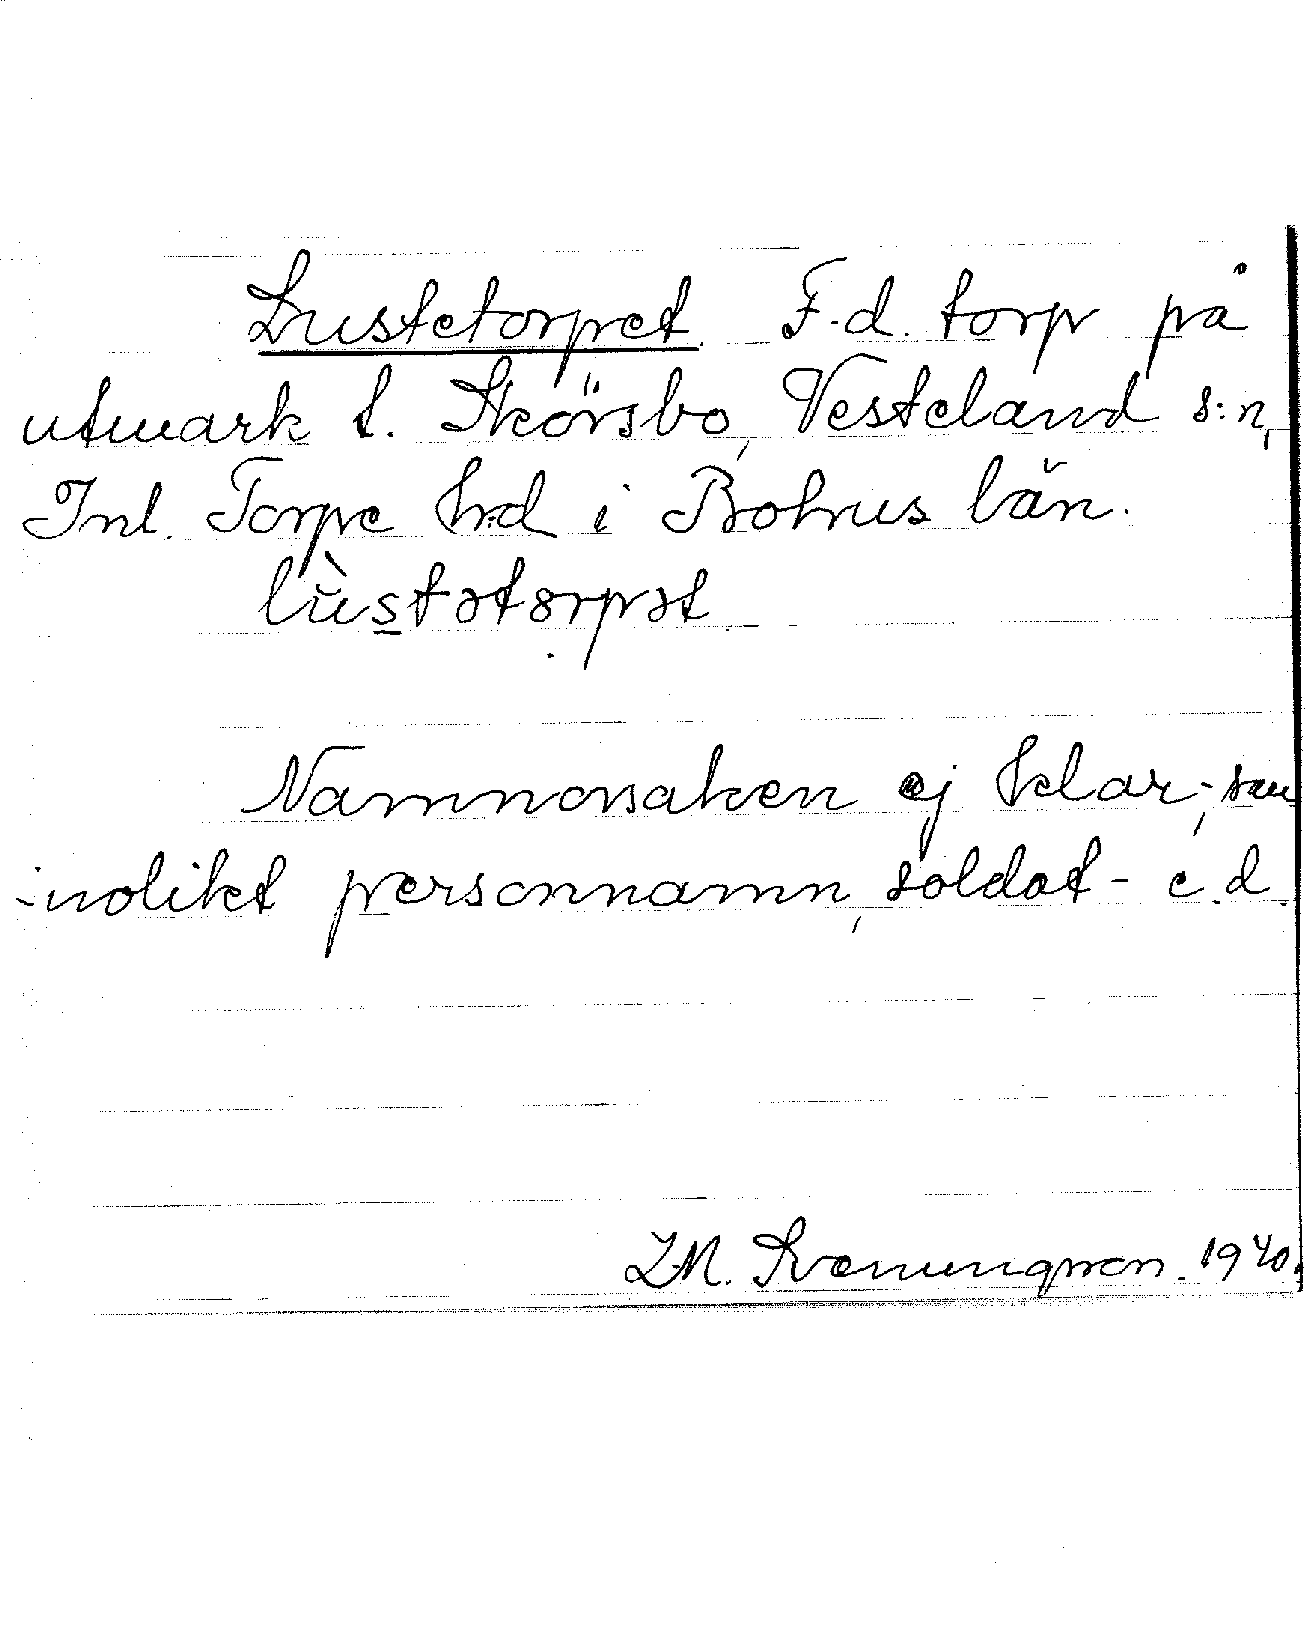 Lustetorpet. F.d. torp på
utmark t. Skörsbo, Vesteland s:n,
Inl. Torpe h:d i Bohus län.
lùstətorpət.
Namnorsaken ej klar; san-
nolikt personnamn, soldat- e.d.
1940.